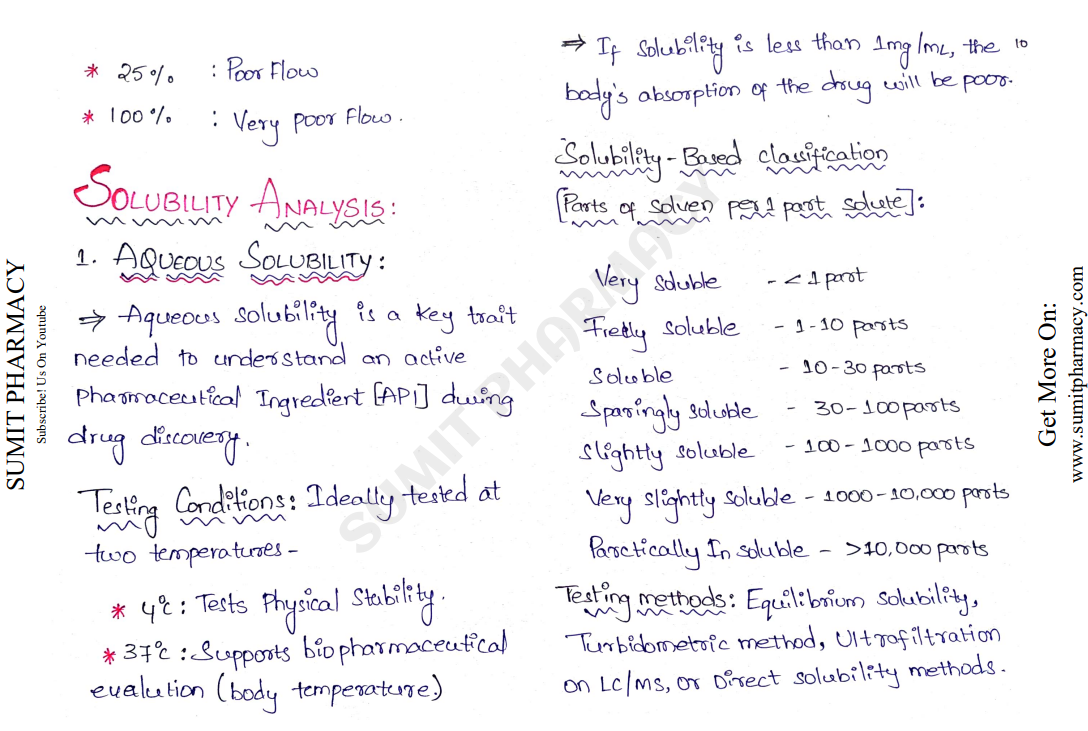 * 25% : Poor Flow
* 100% : Very poor Flow.
SOLUBILITY ANALYSIS:
1. AQUEOUS SOLUBILITY:
⇒ Aqueous solubility is a key trait
needed to understand an active
Pharmaceutical Ingredient [API] during
drug discovery.
Testing Conditions: Ideally tested at
two temperatures -
* 4°C: Tests Physical Stability.
* 37°C: Supports biopharmaceutical
evalution (body temperature)
⇒ If solubility is less than 1mg/mL, the
body's absorption of the drug will be poor.
10
Solubility - Based classification
[Parts of solven per 1 part solute]:
Very soluble - < 1 part
Freely soluble - 1-10 parts
Soluble - 10-30 parts
Sparingly soluble - 30-100 parts
Slightly soluble - 100-1000 parts
Very slightly soluble - 1000-10,000 parts
Parctically In soluble - >10,000 parts
Testing methods: Equilibrium solubility,
Turbidometric method, Ultrofiltration
on LC/MS, or Direct solubility methods.
SUMIT PHARMACY
Subscribe! Us On Youtube
Get More On:
www.sumitpharmacy.com
SUMIT PHARMACY